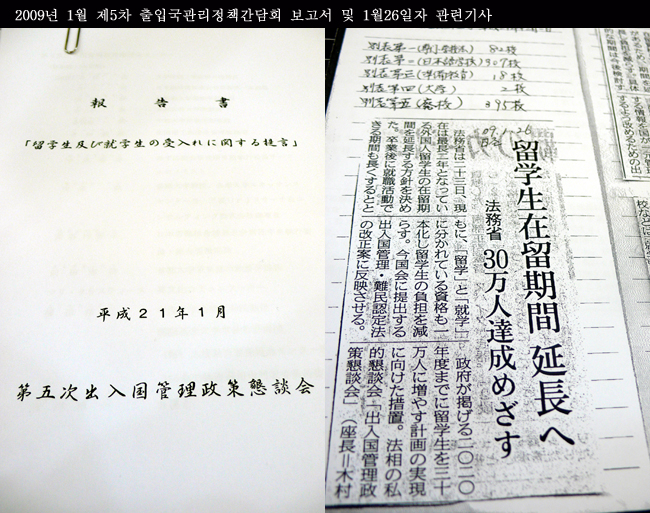 2009년 1월 제5차 출입국관리정책간담회 보고서 및 1월26일자 관련기사
報 告 書
「留学生及び就学生の受入れに関する提言」
平成２１年１月
第五次出入国管理政策懇談会
別表第一(専門学校) 82校
別表第二(日本語学校) 307校
別表第三(準備教育) 18校
別表第四(大学) 2校
別表第五(高校) 395校
09.1.26
留学生在留期間 延長へ
法務省 30万人達成めざす
法務省は二十三日、現
在は最長二年となってい
る外国人留学生の在留期
間を延長する方針を決め
た。卒業後に就職活動で
きる期間も長くするとと
もに、「留学」と「就学」
に分かれている資格も一
本化し留学生の負担を減
らす。今国会に提出する
出入国管理・難民認定法
の改正案に反映させる。
政府が掲げる二〇二〇
年度までに留学生を三十
万人に増やす計画の実現
に向けた措置。法相の私
的懇談会「出入国管理政
策懇談会」（座長＝木村